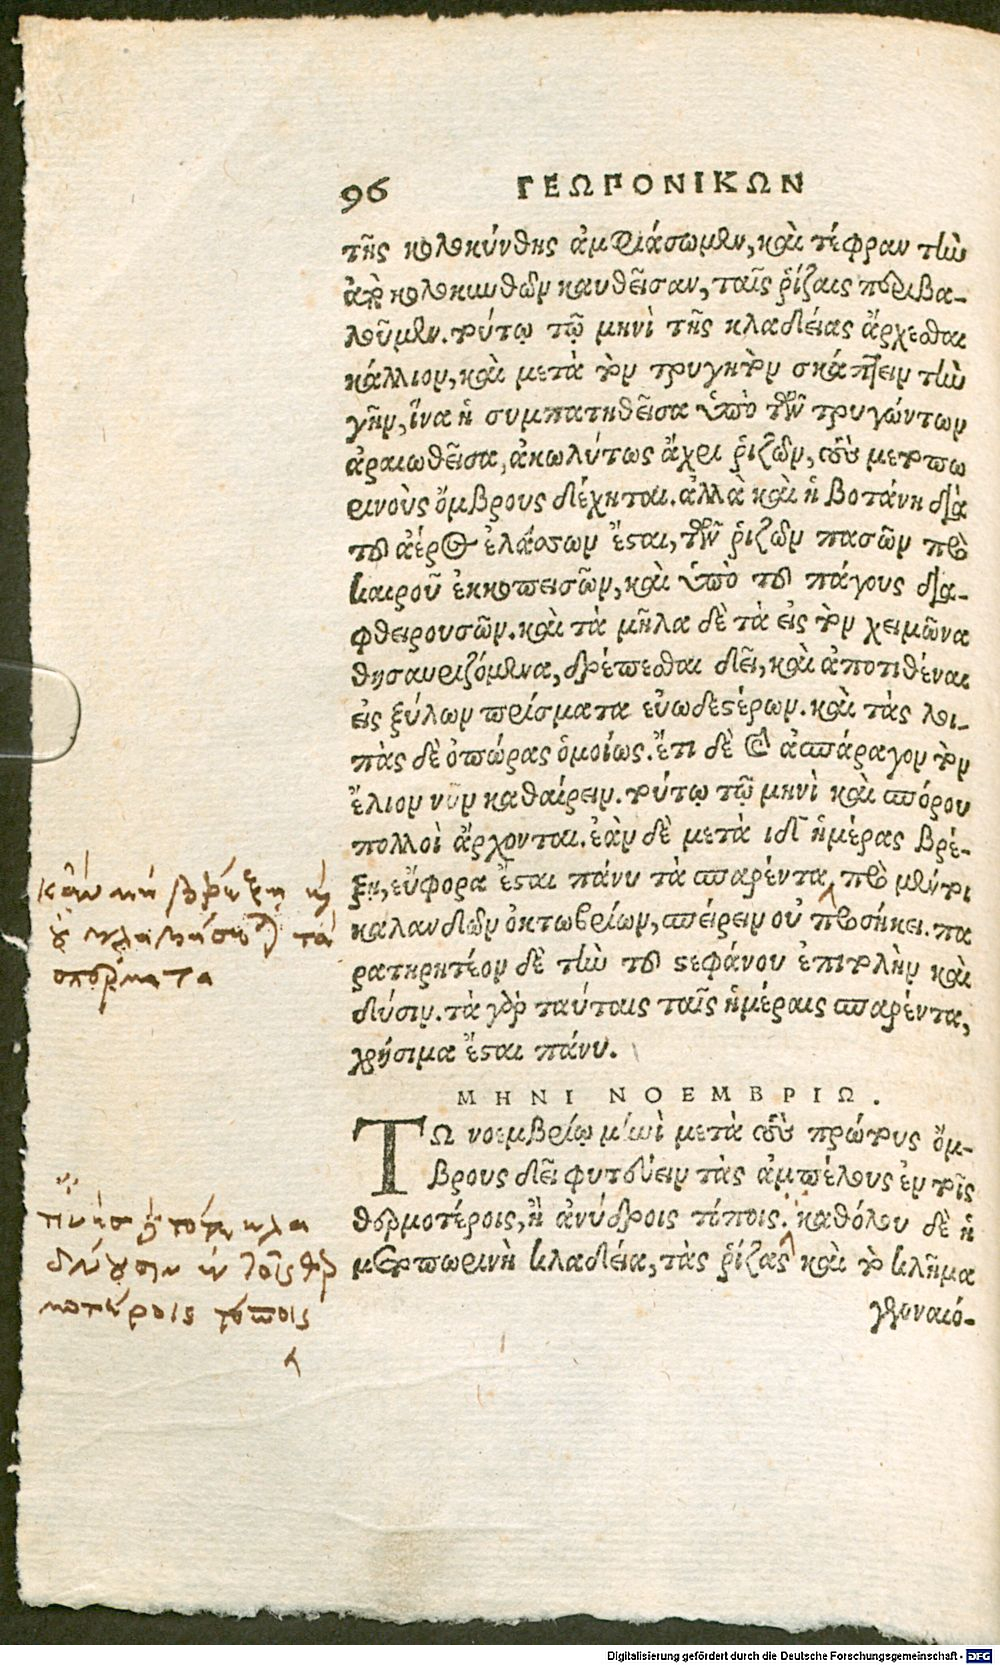 96 ΓΕΩΠΟΝΙΚΩΝ
τῆς κολοκύνθης ἀμφιάσωμεν, καὶ τέφραν τὴν
ἀπὸ κολοκυνθῶν καυθεῖσαν, ταῖς ῥίζαις περιβα-
λοῦμεν. τούτῳ τῷ μηνὶ τῆς κλαδείας ἄρχεσθαι
κάλλιον, καὶ μετὰ τὸν τρυγητὸν σκάπτειν τὴν
γῆν, ἵνα ἡ συμπατηθεῖσα ὑπὸ τῶν τρυγώντων
ἀραιωθεῖσα, ἀκωλύτως ἄχρι ῥιζῶν, τοὺς μετοπω
ρινοὺς ὄμβρους δέχηται. ἀλλὰ καὶ ἡ βοτάνη διὰ
τοῦ ἀέρος ἐλάσσων ἔσται, τῶν ῥιζῶν πασῶν πρὸ
καιροῦ ἐκκοπεισῶν, καὶ ὑπὸ τοῦ πάγους δια-
φθειρουσῶν. καὶ τὰ μῆλα δὲ τὰ εἰς τὸν χειμῶνα
θησαυριζόμενα, δρέπεσθαι δεῖ, καὶ ἀποτιθέναι
εἰς ξύλων πρίσματα εὐωδεστέρων. καὶ τὰς λοι-
πὰς δὲ ὀπώρας ὁμοίως. ἔτι δὲ καὶ ἀσπάραγον τὸν
ἕλιον νῦν καθαίρειν. τούτῳ τῷ μηνὶ καὶ σπόρου
πολλοὶ ἄρχονται. ἐὰν δὲ μετὰ ιδ ἡμέρας βρέ-
ξῃ, εὔφορα ἔσται πάνυ τὰ σπαρέντα, πρὸ μέντοι
καλανδῶν ὀκτωβρίων, σπείρειν οὐ προσήκει. πα
ρατηρητέον δὲ τὴν τοῦ στεφάνου ἐπιτολὴν καὶ
δύσιν. τὰ γὰρ ταύταις ταῖς ἡμέραις σπαρέντα,
χρήσιμα ἔσται πάνυ.
ΜΗΝΙ ΝΟΕΜΒΡΙΩ.
ΤΩ νοεμβρίῳ μηνὶ μετὰ τοὺς πρώτους ὄμ-
βρους δεῖ φυτεύειν τὰς ἀμπέλους ἐν τοῖς
θερμοτέροις, ἢ ἀνύδροις τόποις. καθόλου δὲ ἡ
μετοπωρινὴ κλαδεία, τὰς ῥίζας καὶ τὸ κλῆμα
γενναιό-
κἂν μὴ βρέξῃ
τὰ
σπέρματα
τινὲς τότε κλα
δεύουσιν ἐν τοῖς θερ
μοτέροις τόποις
Digitalisierung gefördert durch die Deutsche Forschungsgemeinschaft - DFG